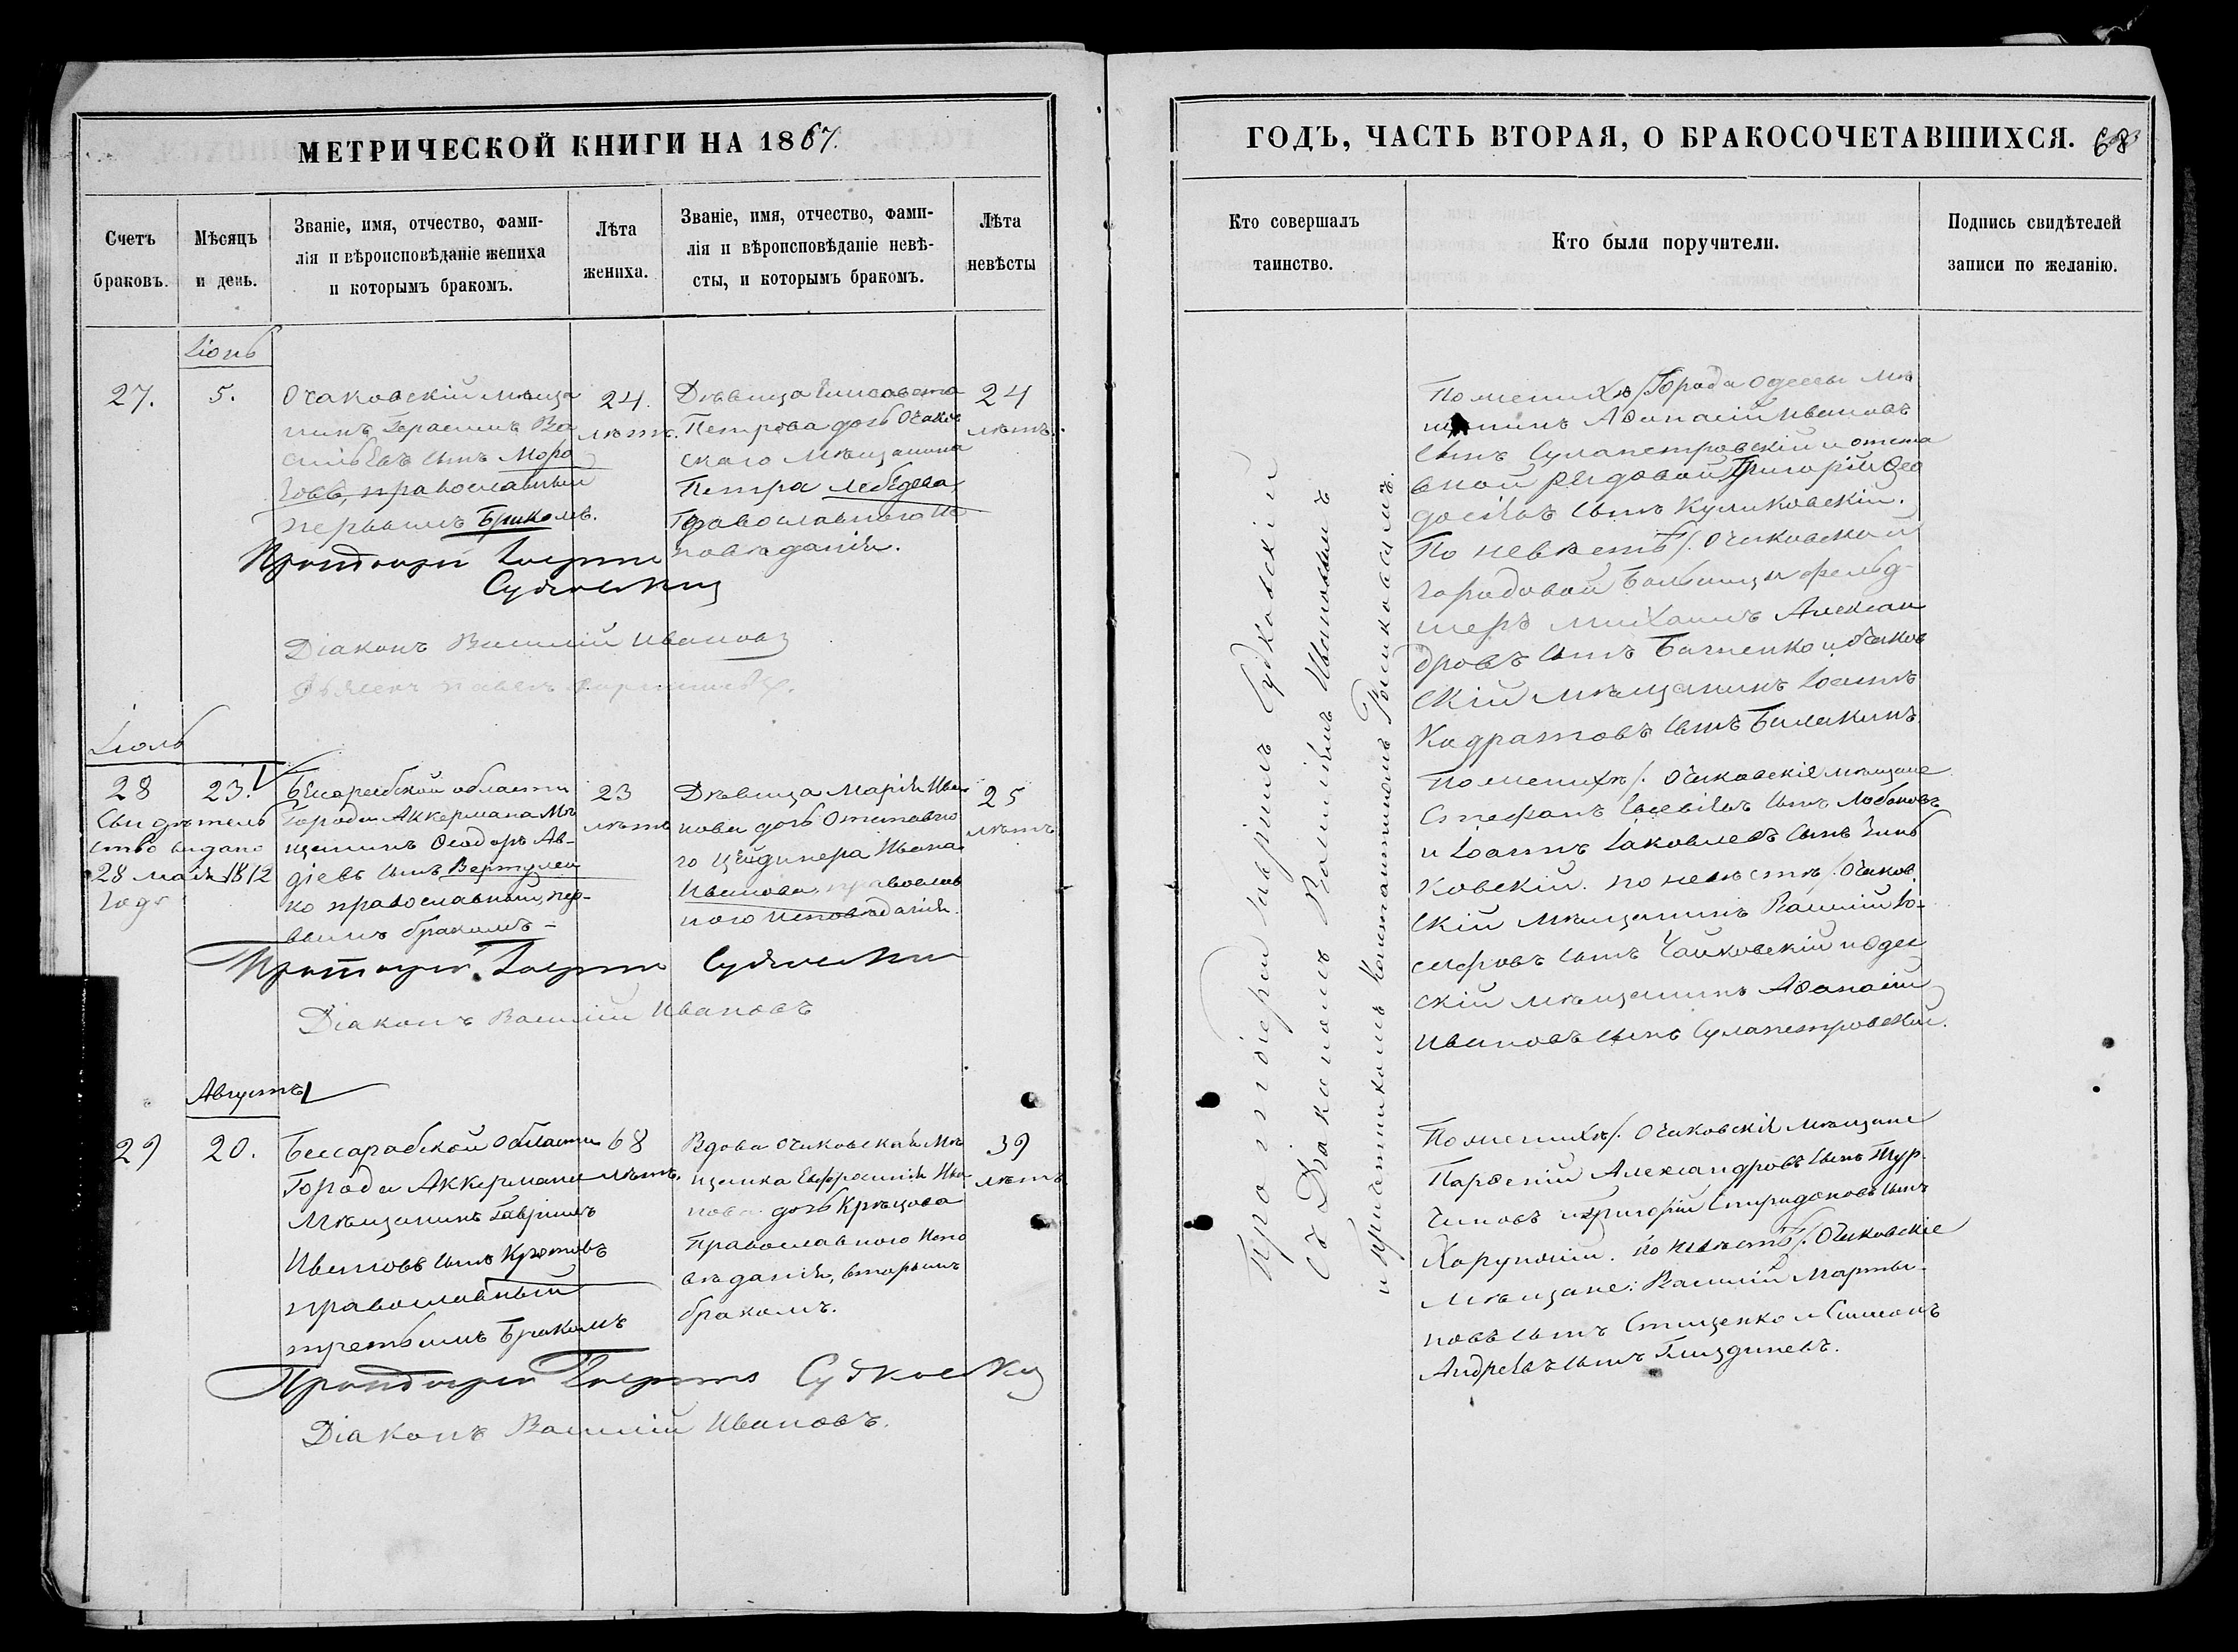 МЕТРИЧЕСКОЙ КНИГИ НА 1867.
Счетъ
браковъ.
Мѣсяцъ
и день.
Званіе, имя, отчество, фами-
лія и вѣроисповѣданіе жениха
и которымъ бракомъ.
Лѣта
жениха.
Званіе, имя, отчество, фами-
лія и вѣроисповѣданіе невѣ-
сты, и которымъ бракомъ.
Лѣта
невѣсты
Іюнь
27.
5.
Очаковскій мѣща
нинъ Герасимъ Ва
сильевъ сынъ Моро
зовъ, православный
первымъ бракомъ.
24.
лѣтъ.
Дѣвица Елисавета
Петрова дочь Очаков
скаго мѣщанина
Петра Лебедева,
Православнаго ис
повѣданія.
24
лѣтъ.
Протоіерей Гавріилъ
Судковскій
Діаконъ Василій Ивановъ
Іюль
28
23.
Свидѣтель
ство выдано
28 мая 1872
года
Бессарабской области
города Аккермана мѣ
щанинъ Ѳеодоръ Ав-
діевъ сынъ Вертулен
ко православный, пер-
вымъ бракомъ-
23
лѣтъ
Дѣвица Марія Ива
нова дочь Отставно
го Цейдинера Ивана
Иванова, православ
ного исповѣданія.
25
лѣтъ
Протоіерей Гавріилъ Судковскій
Діаконъ Василій Ивановъ
Августъ
29
20.
Бессарабской области
Города Аккермана
Мѣщанинъ Гавріилъ
Ивановъ сынъ Кротовъ
православный
третьимъ бракомъ
68
лѣтъ.
Вдова Очаковская мѣ
щанка Евфросинія Ива
нова дочь Крѣцова
Православного испо
вѣданія, вторымъ
бракомъ.
39
лѣтъ
Протоіерей Гавріилъ Судковскій
Діаконъ Василій Ивановъ.
ГОДЪ, ЧАСТЬ ВТОРАЯ, О БРАКОСОЧЕТАВШИХСЯ. 68
Кто совершалъ
таинство.
Кто были поручители.
Подпись свидѣтелей
записи по желанію.
Протоіерей Гавріилъ Судковскій
съ Діакономъ Василіемъ Ивановымъ
и причетникомъ Константиномъ
По женихѣ/. Города Одессы мѣ
щанинъ Аѳанасій Ивановъ
сынъ Сулапетровскій и отста
вной рядовой Григорій Ѳео
досіевъ сынъ Куликовскій.
По невѣстѣ/. Очаковской
городовой больницы фельд-
шеръ Михаилъ Алексан
дровъ сынъ Баженко и Очаков
скій мѣщанинъ Іоаннъ
Кадратовъ сынъ Балакинъ
По женихѣ/. Очаковскіе мѣщане
Стефанъ Евсѣевъ сынъ Лобановъ
и Іоаннъ Іаковлевъ сынъ
ковскій. по невѣстѣ/. Очаков
скій мѣщанинъ Василій Іо-
сифовъ сынъ Чайковскій и Одес
скій мѣщанинъ Аѳанасій
Ивановъ сынъ Сулапетровскій.
По женихѣ/. Очаковскіе мѣщане
Парѳеній Александровъ сынъ Тур
чиновъ и Григорій Спиридоновъ сынъ
Харунжій. По невѣстѣ/. Очаковскіе
мѣщане: Василій Марты-
новъ сынъ Стищенко и Симеонъ
Андреевъ сынъ